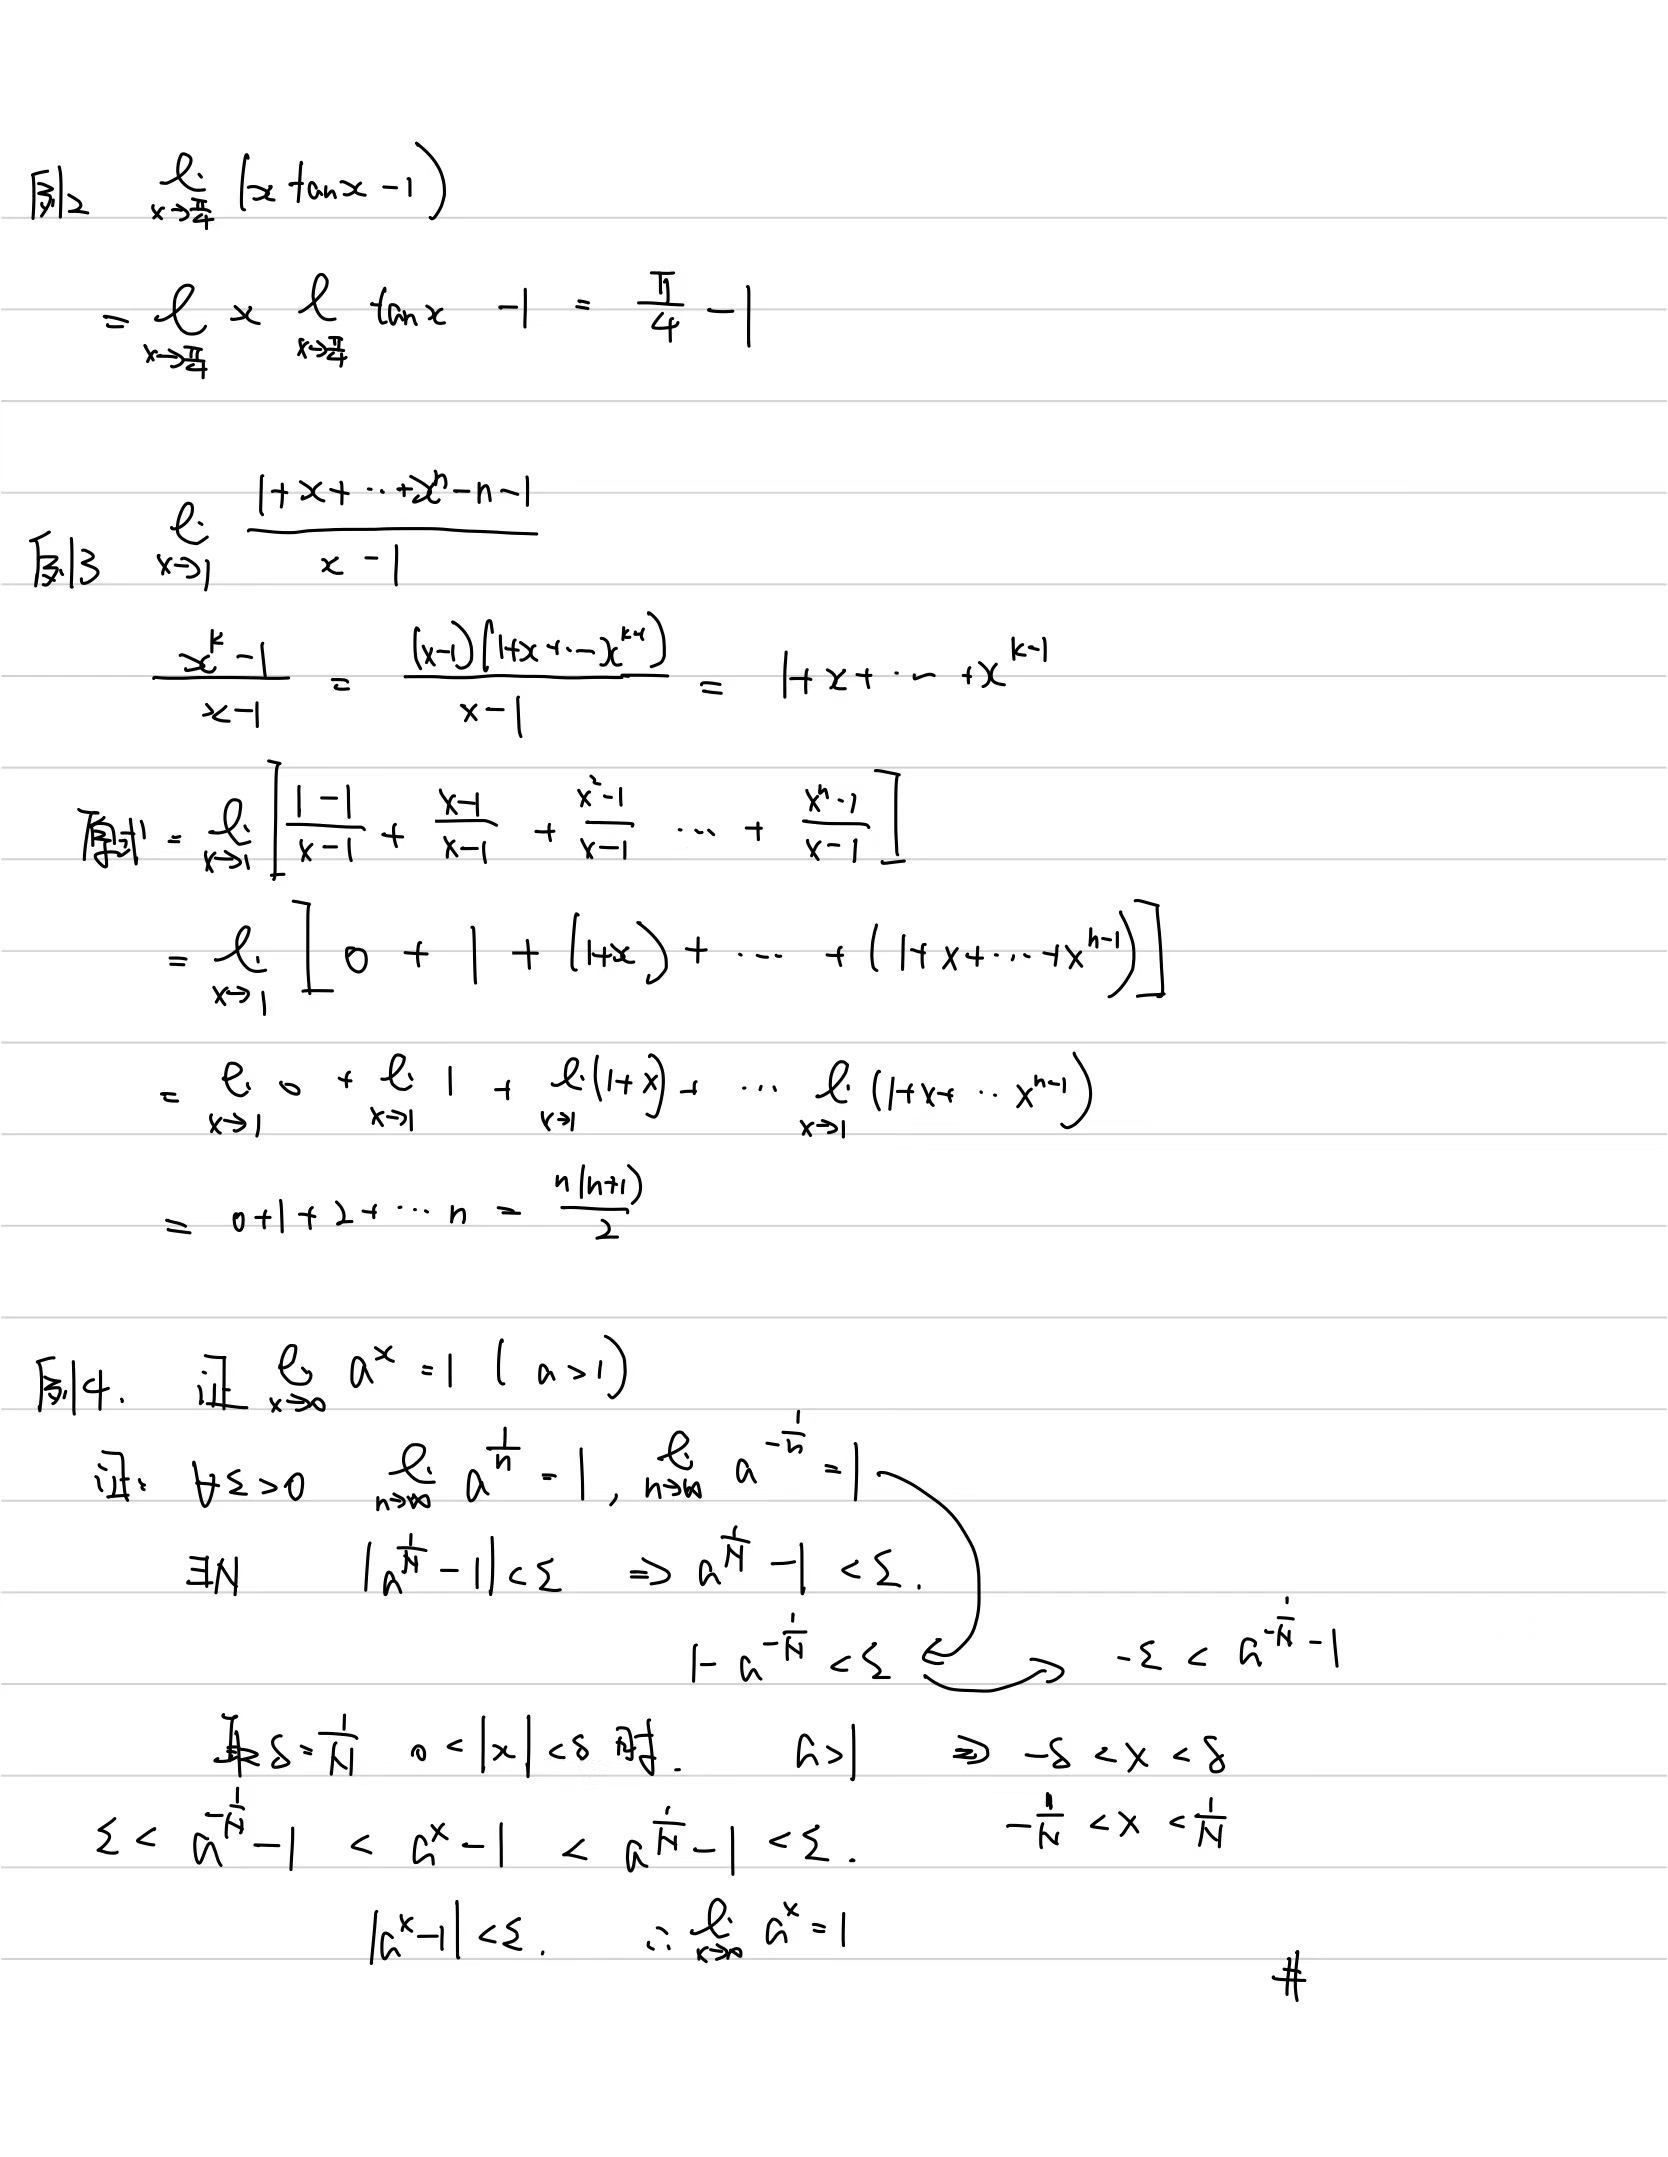 例2 lim_{x→π/4} (x tanx − 1)
= lim_{x→π/4} x lim_{x→π/4} tanx − 1 = π/4 − 1
例3 lim_{x→1} (1+x+⋯+xⁿ−n−1)/(x−1)
(x^k −1)/(x−1) = (x−1)(1+x+⋯x^{k-1})/(x−1) = 1+x+⋯+x^{k-1}
原式 = lim_{x→1} [(1−1)/(x−1) + (x−1)/(x−1) + (x²−1)/(x−1) ⋯ + (xⁿ−1)/(x−1)]
= lim_{x→1} [0 + 1 + (1+x) + ⋯ + (1+x+⋯+x^{n-1})]
= lim_{x→1} 0 + lim_{x→1} 1 + lim_{x→1} (1+x) + ⋯ lim_{x→1} (1+x+⋯x^{n-1})
= 0+1+2+⋯n = n(n+1)/2
例4. 证 lim_{x→0} a^x = 1 (a>1)
证: ∀ε>0 lim_{n→∞} a^{1/n} = 1, lim_{n→∞} a^{-1/n} = 1
∃N |a^{1/N} − 1| < ε ⇒ a^{1/N} − 1 < ε.
1 − a^{-1/N} < ε → −ε < a^{-1/N} − 1
取 δ = 1/N 0 < |x| < δ 时. a>1 ⇒ −δ < x < δ
−1/N < x < 1/N
ε < a^{-1/N} − 1 < a^x − 1 < a^{1/N} − 1 < ε.
|a^x − 1| < ε. ∴ lim_{x→0} a^x = 1
#